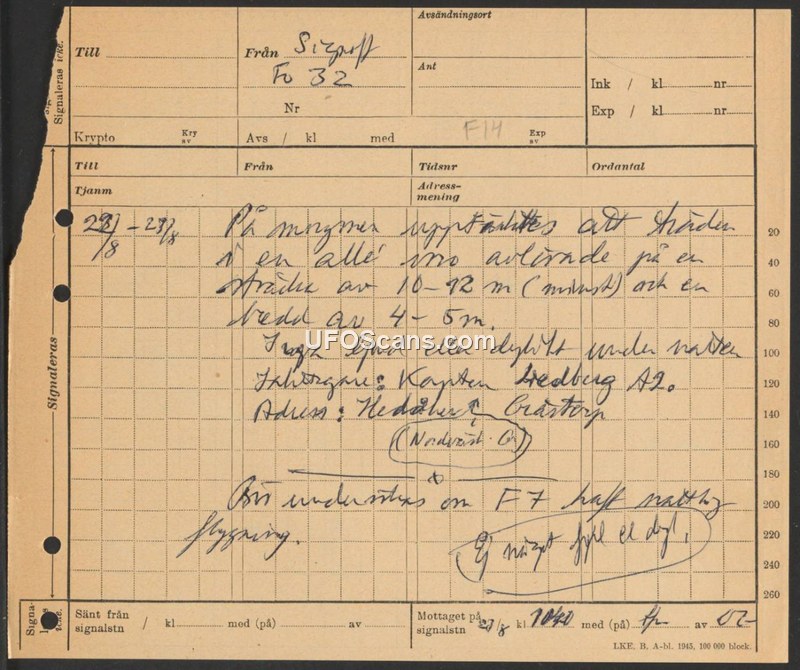 Signaleras icke.
Till
Från Signoff
Fo 32
Nr
Avsändningsort
Ant
Ink / kl nr
Exp / kl nr
Krypto Kry av
Avs / kl med
F14
Exp av
Till Från Tidsnr Ordantal
Tjänm Adressmening
På morgonen upptäcktes att träden
i en allé voro avlövade på en
sträcka av 10-12 m (minst) och en
bredd av 4-5 m.
Inga ljud eller dylikt under natten
Iakttagare: Kapten Hedberg A2.
Adress: Grästorp
(Nordväst
Bör undersökas om F7 haft nattlig
flygning.
Ej något
20
60
80
100
120
140
160
180
200
220
240
260
Signaleras
UFOScans.com
Signaleras icke.
Sänt från signalstn / kl med (på) av
Mottaget på signalstn 29/8 kl 1040 med (på) av
LKE. B. A-bl. 1945. 100 000 block.